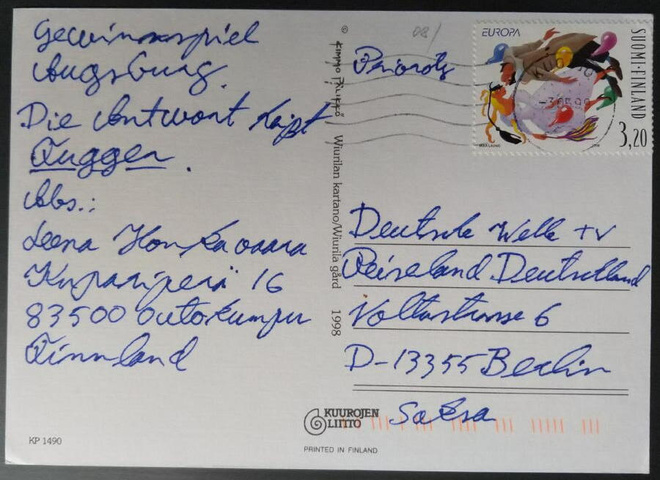 Gewinnspiel
Augsburg.
Die Antwort heißt
Fugger.
Abs.:
Leena Honkavaara
Kupariperä 16
83500 Outokumpu
Finnland
KP 1490
©
Wiurilan kartano/Wiurila gård 1998
08/
Priority
EUROPA
SUOMI-FINLAND
3,20
Deutsche Welle TV
Reiseland Deutschland
Voltastrasse 6
D-13355 Berlin
Saksa
KUUROJEN
LIITTO
PRINTED IN FINLAND